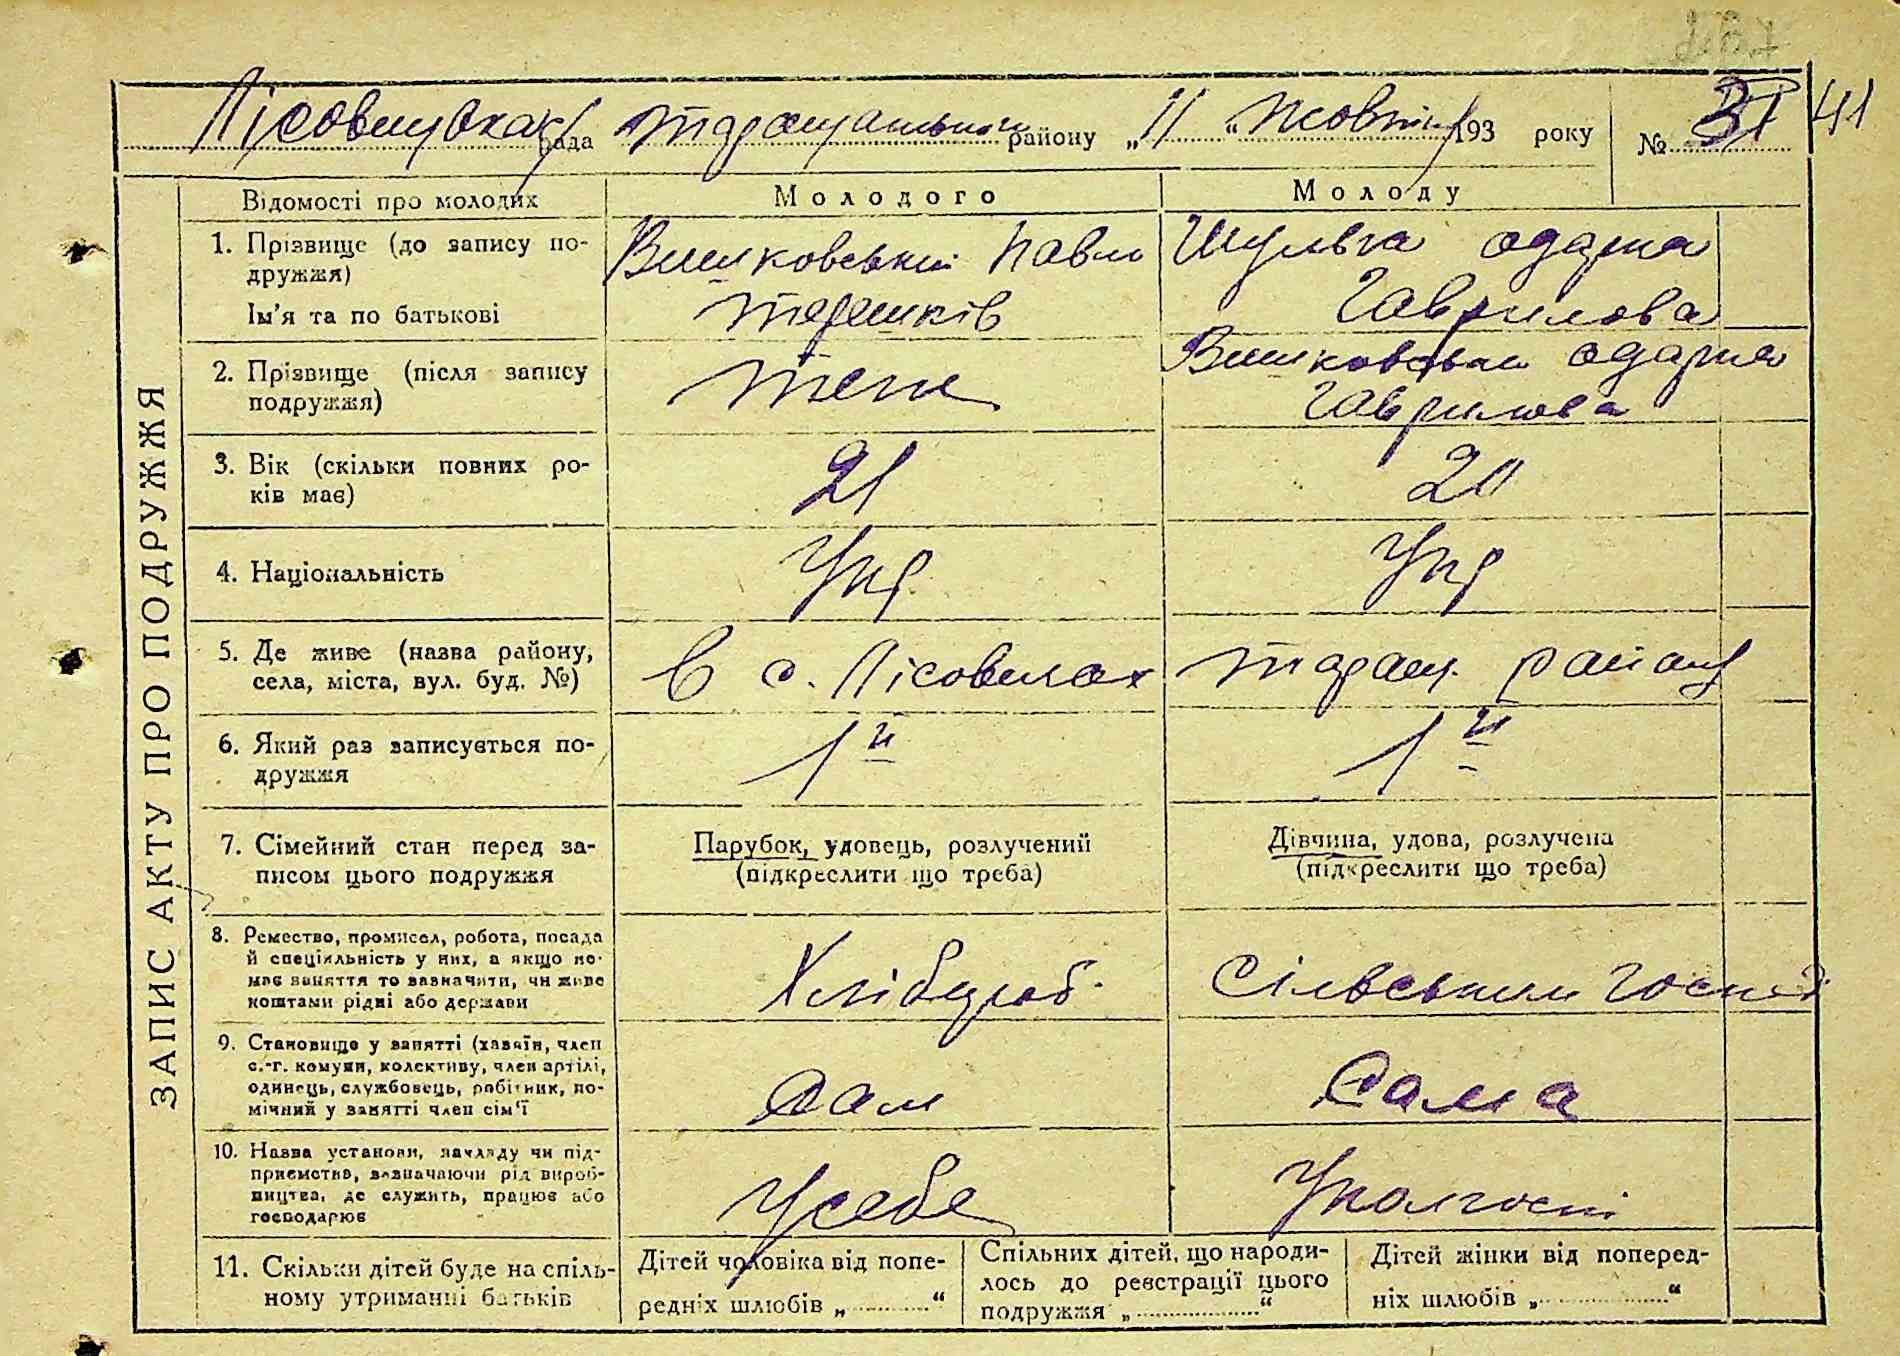 Лісовицька рада Таращанського району „11" Жовтня 193 року № 31 41
ЗАПИС АКТУ ПРО ПОДРУЖЖЯ
Відомості про молодих Молодого Молоду
1. Прізвище (до запису по-
дружжя)
Ім'я та по батькові
Вишковський Павло
Терешків
Шульга Одарка
Гаврилова
2. Прізвище (після запису
подружжя)
теж
Вишковська Одарка
Гаврилова
3. Вік (скільки повних ро-
ків має)
21
20
4. Національність
Укр.
Укр
5. Де живе (назва району,
села, міста, вул. буд. №)
в с. Лісовичах
Таращ. району
6. Який раз записується по-
дружжя
1й
1й
7. Сімейний стан перед за-
писом цього подружжя
Парубок, удовець, розлучений
(підкреслити що треба)
Дівчина, удова, розлучена
(підкреслити що треба)
8. Ремество, промисел, робота, посада
й спеціяльність у них, а якщо не-
має заняття то зазначити, чи живе
коштами рідні або держави
Хлібороб.
Сільським господ
9. Становище у занятті (хазяїн, член
с.-г. комуни, колективу, член артілі,
одинець, службовець, робітник, по-
мічний у занятті член сім'ї
Сам
Сама
10. Назва установи, закладу чи під-
приємства, зазначаючи рід вироб-
ництва, де служить, працює або
господарює
У себе
У колгоспі
11. Скільки дітей буде на спіль-
ному утриманні батьків
Дітей чоловіка від попе-
редніх шлюбів „ “
Спільних дітей, що народи-
лось до реєстрації цього
подружжя „ “
Дітей жінки від поперед-
ніх шлюбів „ “